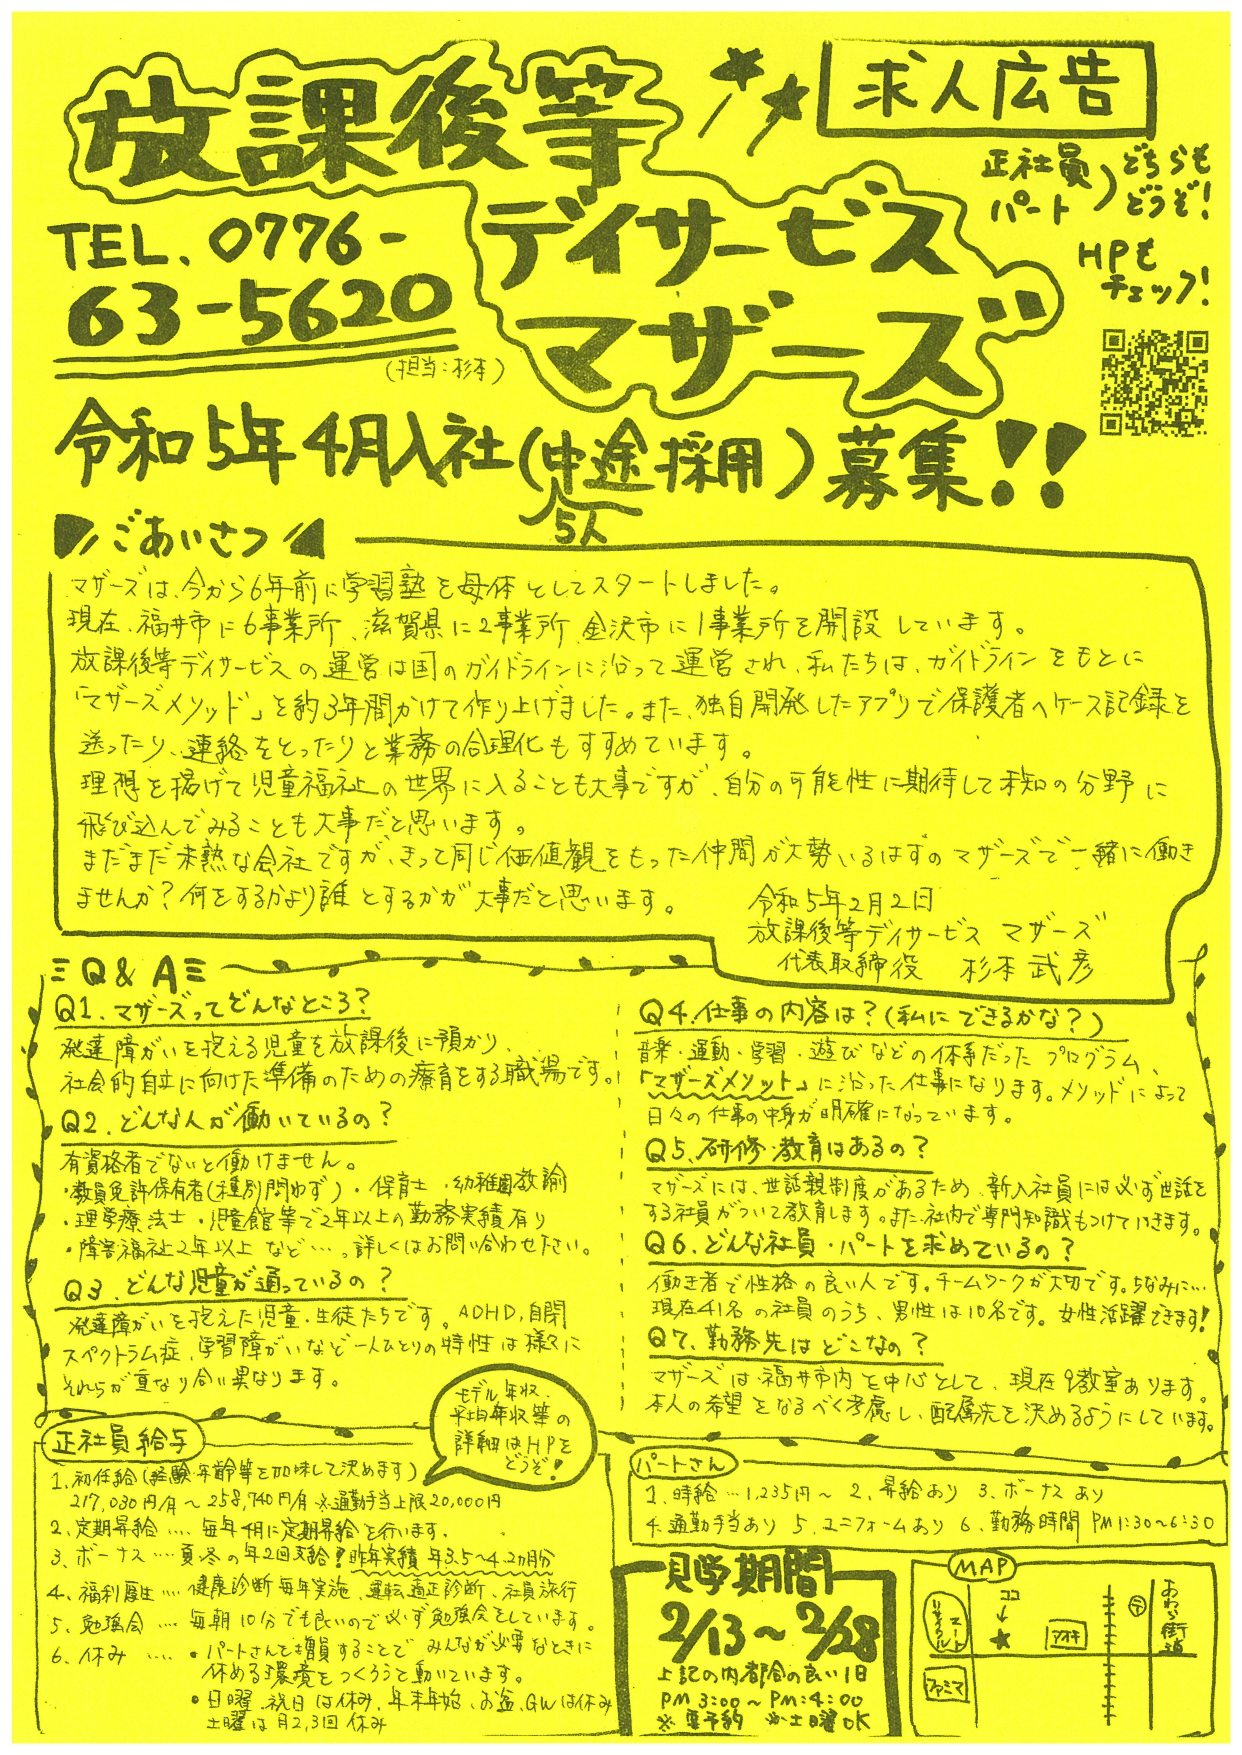 放課後等
デイサービス
マザーズ
求人広告
正社員
パート
どちらも
どうぞ!
HPも
チェック!
TEL. 0776-
63-5620
(担当:杉本)
令和5年4月入社(中途採用)募集!!
5人
ごあいさつ
マザーズは、今から6年前に学習塾を母体としてスタートしました。
現在、福井市に6事業所、滋賀県に2事業所、金沢市に1事業所を開設しています。
放課後等デイサービスの運営は国のガイドラインに沿って運営され、私たちは、ガイドラインをもとに
「マザーズメソッド」を約3年間かけて作り上げました。また、独自開発したアプリで保護者へケース記録を
送ったり、連絡をとったりと業務の合理化もすすめています。
理想を掲げて児童福祉の世界に入ることも大事ですが、自分の可能性に期待して未知の分野に
飛び込んでみることも大事だと思います。
まだまだ未熟な会社ですが、きっと同じ価値観をもった仲間が大勢いるはずのマザーズで一緒に働き
ませんか?何をするかより誰とするかが大事だと思います。
令和5年2月2日
放課後等デイサービス マザーズ
代表取締役 杉本 武彦
Q&A
Q1.マザーズってどんなところ?
発達障がいを抱える児童を放課後に預かり、
社会的自立に向けた準備のための療育をする職場です。
Q2.どんな人が働いているの?
有資格者でないと働けません。
・教員免許保有者(種別問わず)・保育士 ・幼稚園教諭
・理学療法士・児童館等で2年以上の勤務実績有り
・障害福祉2年以上 など…。詳しくはお問い合わせ下さい。
Q3.どんな児童が通っているの?
発達障がいを抱えた児童・生徒たちです。ADHD,自閉
スペクトラム症、学習障がいなど一人ひとりの特性は様々に
それらが重なり合い異なります。
Q4.仕事の内容は?(私にできるかな?)
音楽・運動・学習・遊びなどの体系だったプログラム、
「マザーズメソット」に沿った仕事になります。メソッドによって
日々の仕事の中身が明確になっています。
Q5.研修・教育はあるの?
マザーズには、世話親制度があるため、新入社員には必ず世話を
する社員がついて教育します。また、社内で専門知識もつけていきます。
Q6.どんな社員・パートを求めているの?
働き者で性格の良い人です。チームワークが大切です。ちなみに…
現在41名の社員のうち、男性は10名です。女性活躍できます!
Q7.勤務先はどこなの?
マザーズは福井市内を中心として、現在9教室あります。
本人の希望をなるべく考慮し、配属先を決めるようにしています。
正社員給与
モデル年収、
平均年収等の
詳細はHPを
どうぞ!
1.初任給(経験・年齢等を加味して決めます)
217,030円/月～258,740円/月 ※通勤手当上限20,000円
2.定期昇給 …. 毎年4月に定期昇給を行います。
3.ボーナス …. 夏・冬の年2回支給!昨年実績 年3.5～4.2カ月分
4.福利厚生 …. 健康診断毎年実施、運転適正診断、社員旅行
5.勉強会 …. 毎朝10分でも良いので必ず勉強会をしています。
6.休み …. ・パートさんでも増員することでみんなが必要なときに
休める環境をつくろうと動いています。
・日曜、祝日は休み、年末年始、お盆、GWは休み
土曜は月2,3回休み
パートさん
1.時給…1,235円～ 2.昇給あり 3.ボーナスあり
4.通勤手当あり 5.ユニフォームあり 6.勤務時間 PM1:30～6:30
見学期間
2/13～2/28
上記の内都合の良い1日
PM 3:00～PM:4:00
※要予約 ※土曜OK
MAP
ココ
リサイクルマート
ファミマ
アオキ
〒
あわら街道